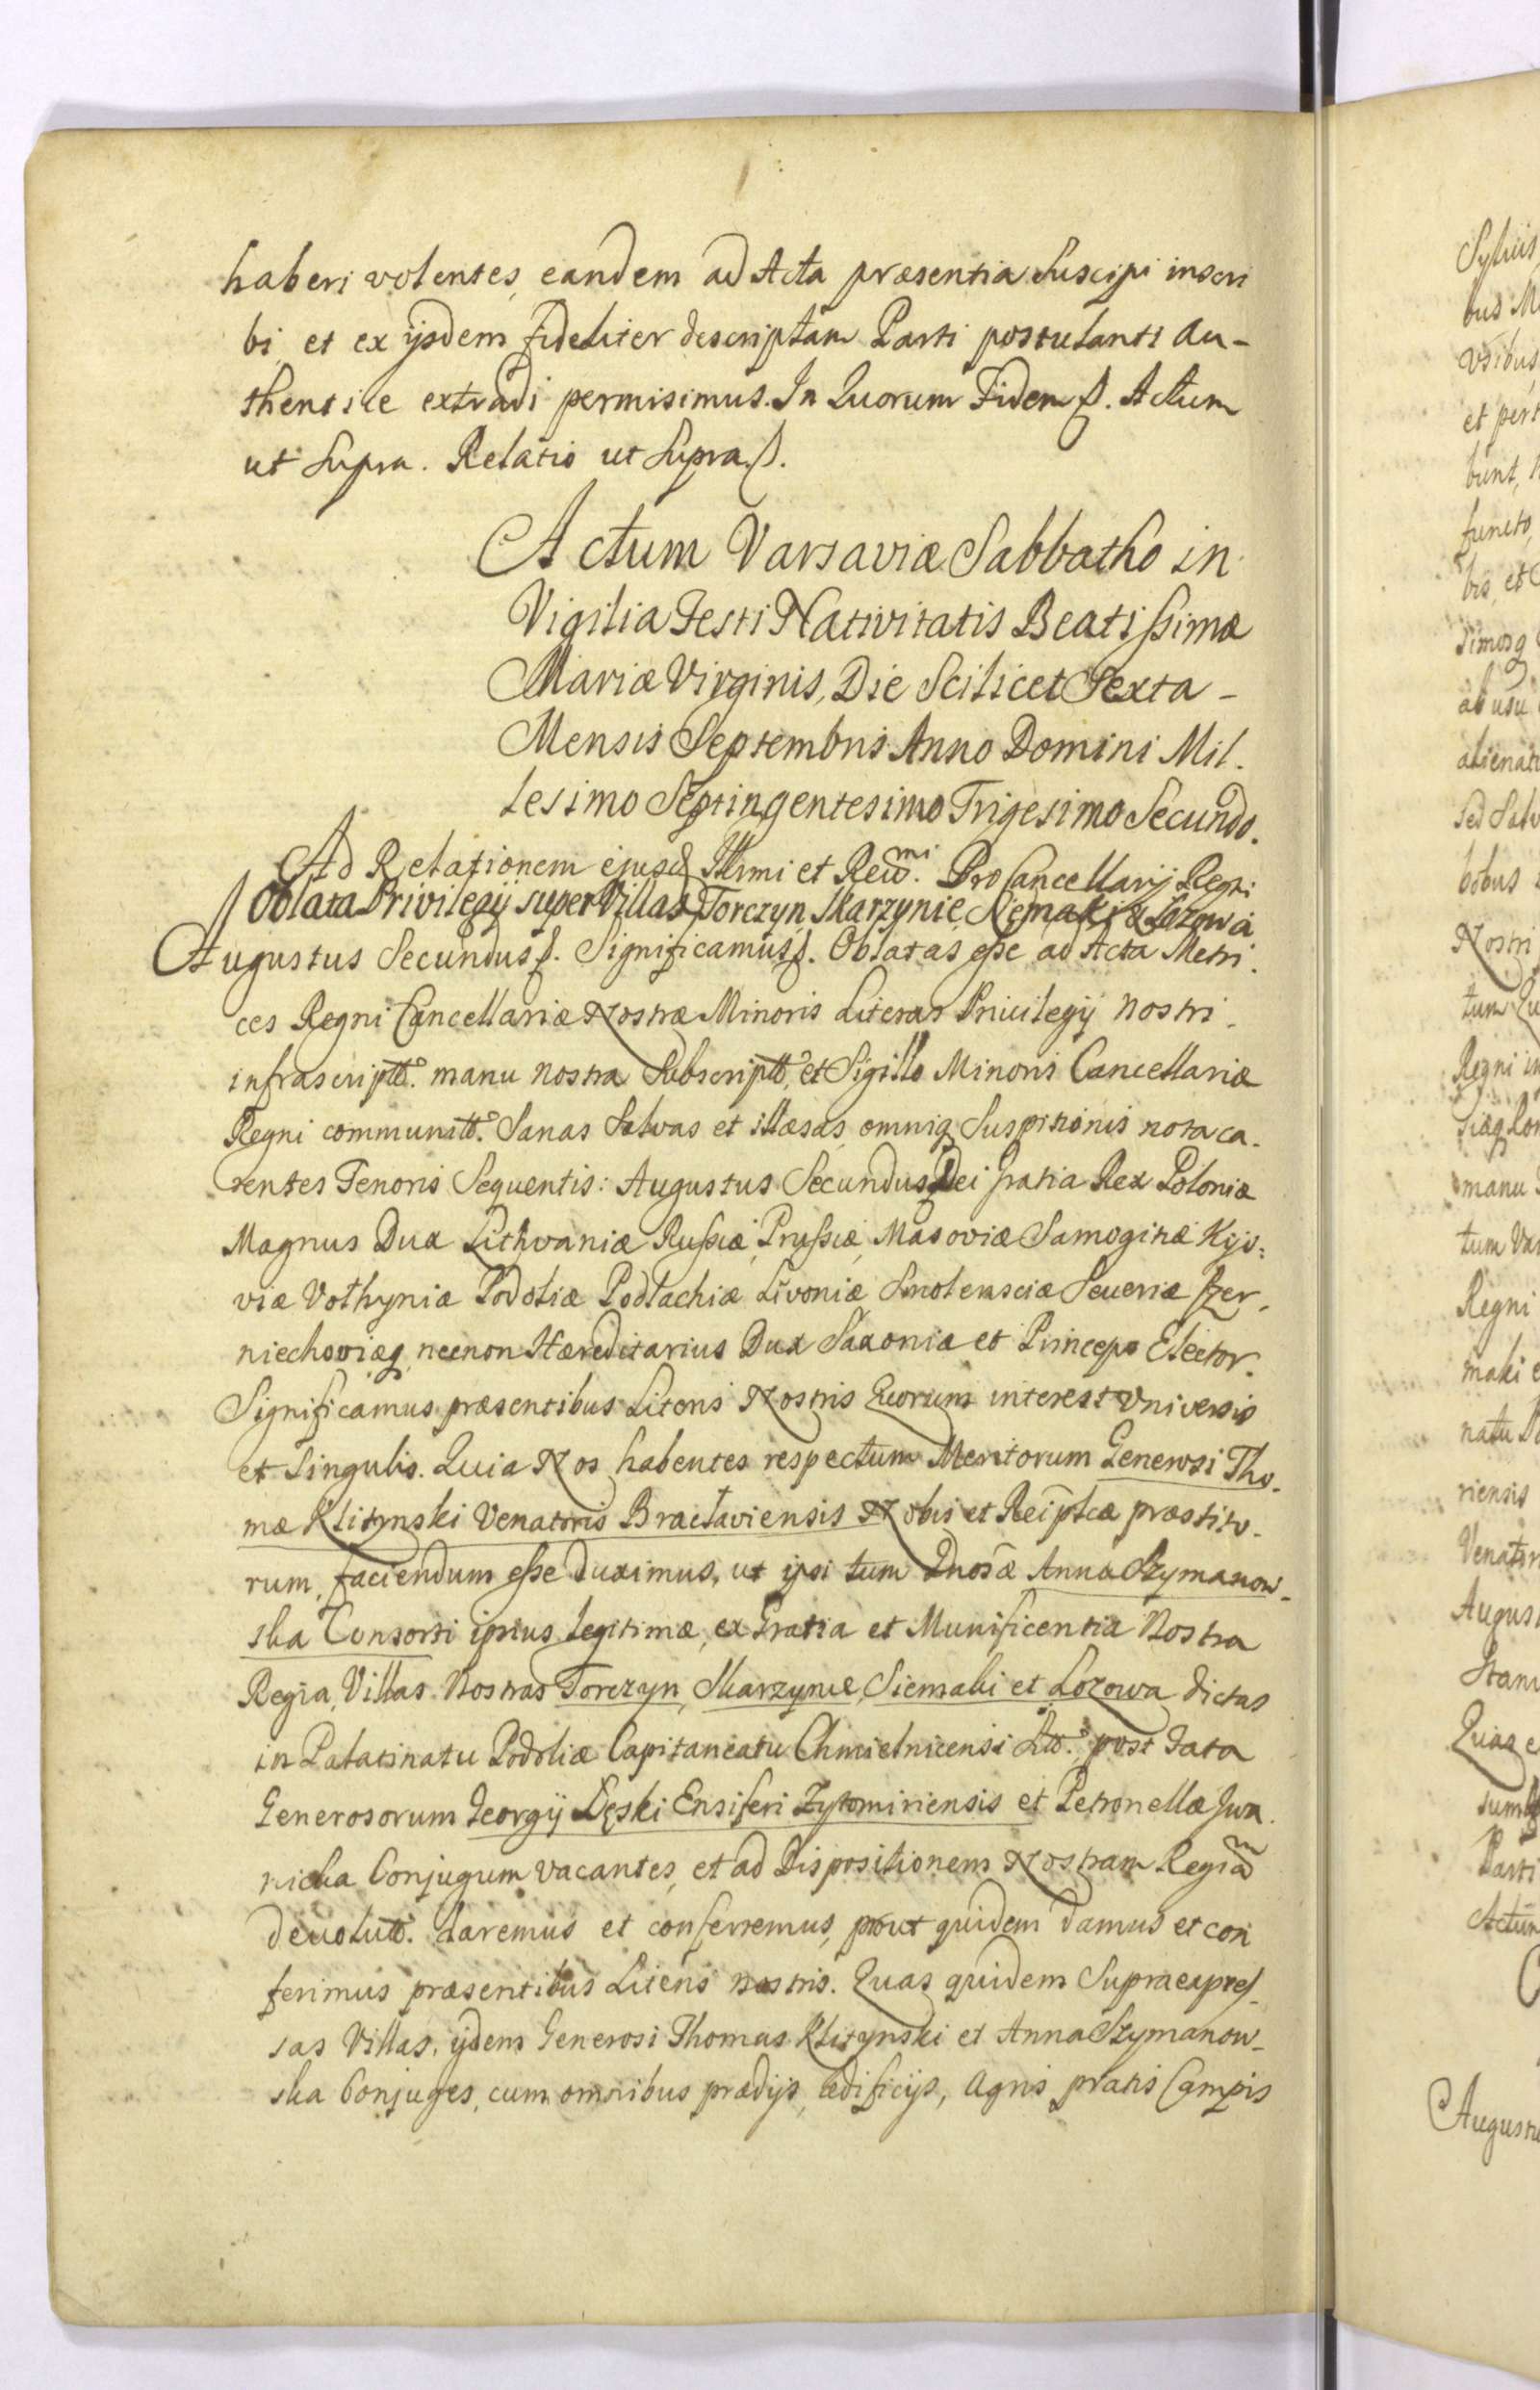 haberi volentes, eandem ad Acta præsentia Suscipi inscri
bi et ex ijsdem fideliter descriptam Parti postulanti au-
thentice extradi permisimus. In Quorum Fidem ß. Actum
ut Supra. Relatio ut Supra ß.
Actum Varsaviæ Sabbatho in
Vigilia Festi Nativitatis Beatissimæ
Mariæ Virginis, Die Scilicet Sexta -
Mensis Septembris Anno Domini Mil-
lesimo Septingentesimo Trigesimo Secundo.
Ad Relationem ejusd Illrmi et Reumi. ProCancellarij Regni
Oblata Privilegij super Villas Torczyn, Skarzynie, Siemaki & Lozowa
Augustus Secundus ß. Significamus ß. Oblatas esse ad Acta Metri-
ces Regni Cancellariæ Nostræ Minoris Literas Priuilegij nostri
infrascriptto. manu nostra Subscriptto, et Sigillo Minoris Cancellariæ
Regni communitto. Sanas Salvas et illæsas, omniq Suspitionis nota ca-
rentes Tenoris Sequentis: Augustus Secundus Dei Gratia Rex Poloniæ
Magnus Dux Lithvaniæ Russiæ, Prussiæ, Masoviæ Samogitiæ Kijo=
viæ Volhyniæ Podoliæ Podlachiæ Livoniæ Smolensciæ Seueriæ Czer-
niechoviæq necnon Hæreditarius Dux Saxoniæ et Princeps Elector.
Significamus præsentibus Literis Nostris Quorum interest Vniversis
et Singulis. Quia Nos habentes respectum Meritorum Generosi Tho-
mæ Klitynski Venatoris Braclaviensis Nobis et Reipłcæ præstito-
rum, faciendum esse duximus, ut ipsi tum Gnosæ Annæ Szymanow-
ska Consorti ipsius legitimæ, ex Gratia et Munificentia Nostra
Regia, Villas Nostras Torczyn, Skarzynie, Siemaki et Lozowa dictas
in Palatinatu Podoliæ Capitaneatu Chmielnicensi Stto. post data
Generosorum Georgij Dęski Ensiferi Zytomiriensis et Petronellæ Jwa-
nicka Conjugum vacantes, et ad Dispositionem Nostram Regiam
deuolutt. daremus et conferremus, prout quidem damus et con
ferimus præsentibus Literis nostris. Quas quidem Supraexpres-
sas Villas, ijdem Generosi Thomas Klitynski et Anna Szymanow-
ska Conjuges, cum omnibus prædijs, ædificijs, agris pratis Campis